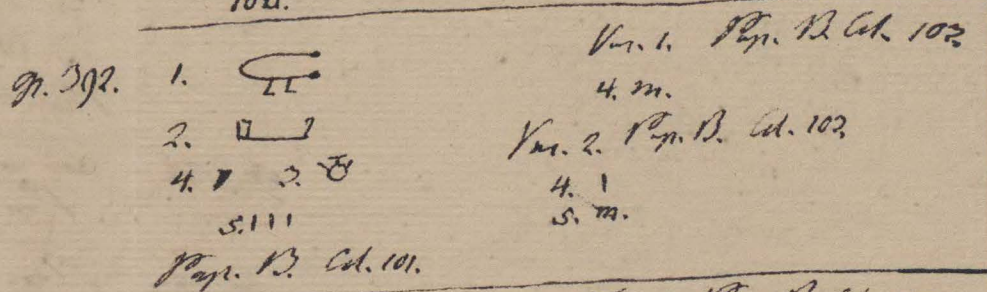 gr. 392. 1.
2.
4. 3.
5. III
Pap. B. Col. 101.
Var. 1. Pap. B. Col. 103.
4. m.
Var. 2. Pap. B. Col. 103.
4. I
5. m.